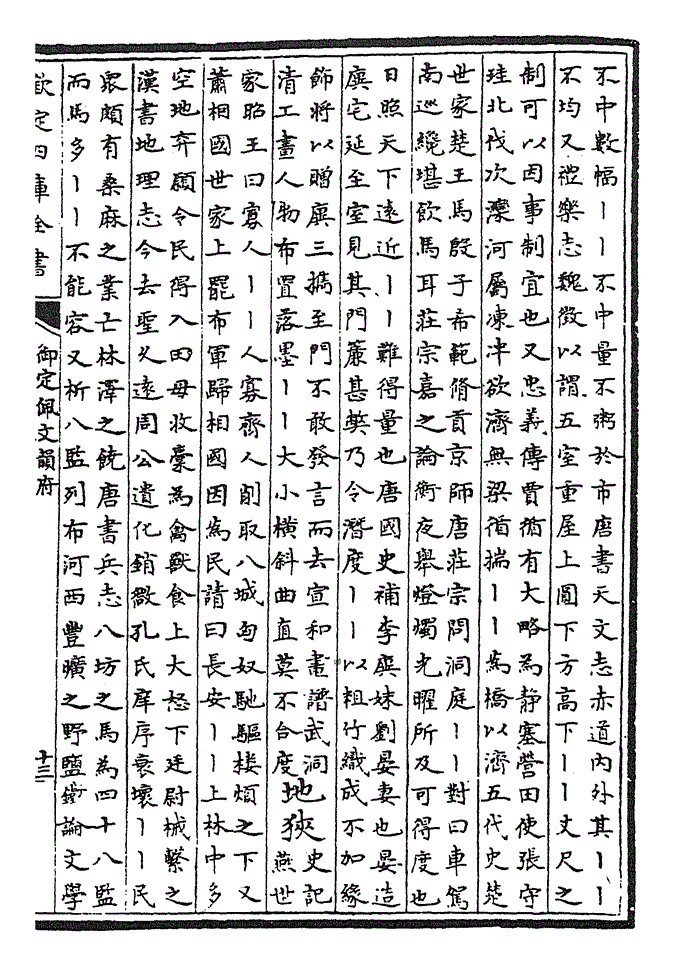 不中數幅丨丨不中量不粥於市唐書天文志赤道內外其丨丨
不均又禮樂志魏徵以謂五室重屋上圓下方高下丨丨丈尺之
制可以因事制宜也又忠義傳賈循有大略為静塞營田使張守
珪北伐次灤河屬凍泮欲濟無梁循揣丨丨為橋以濟五代史楚
世家楚王馬殷子希範脩貢京師唐莊宗問洞庭丨丨對曰車駕
南巡纔堪飲馬耳莊宗嘉之論衡夜舉燈燭光曜所及可得度也
日照天下遠近丨丨難得量也唐國史補李廙妹劉晏妻也晏造
廙宅延至室見其門簾甚獘乃令潛度丨丨以粗竹織成不加緣
飾將以贈廙三擕至門不敢發言而去宣和畫譜武洞
清工畫人物布置落墨丨丨大小横斜曲直莫不合度
地狹
史記
燕世
家昭王曰寡人丨丨人寡齊人削取八城匈奴馳驅樓煩之下又
蕭相國世家上罷布軍歸相國因為民請曰長安丨丨上林中多
空地弃願令民得入田毋收稾為禽獸食上大怒下廷尉械繫之
漢書地理志今去聖久遠周公遺化銷微孔氏庠序衰壞丨丨民
衆頗有桑麻之業亡林澤之饒唐書兵志八坊之馬為四十八監
而馬多丨丨不能容又析八監列布河西豐曠之野鹽鐵論文學
欽定四庫全書
御定佩文韻府
十三